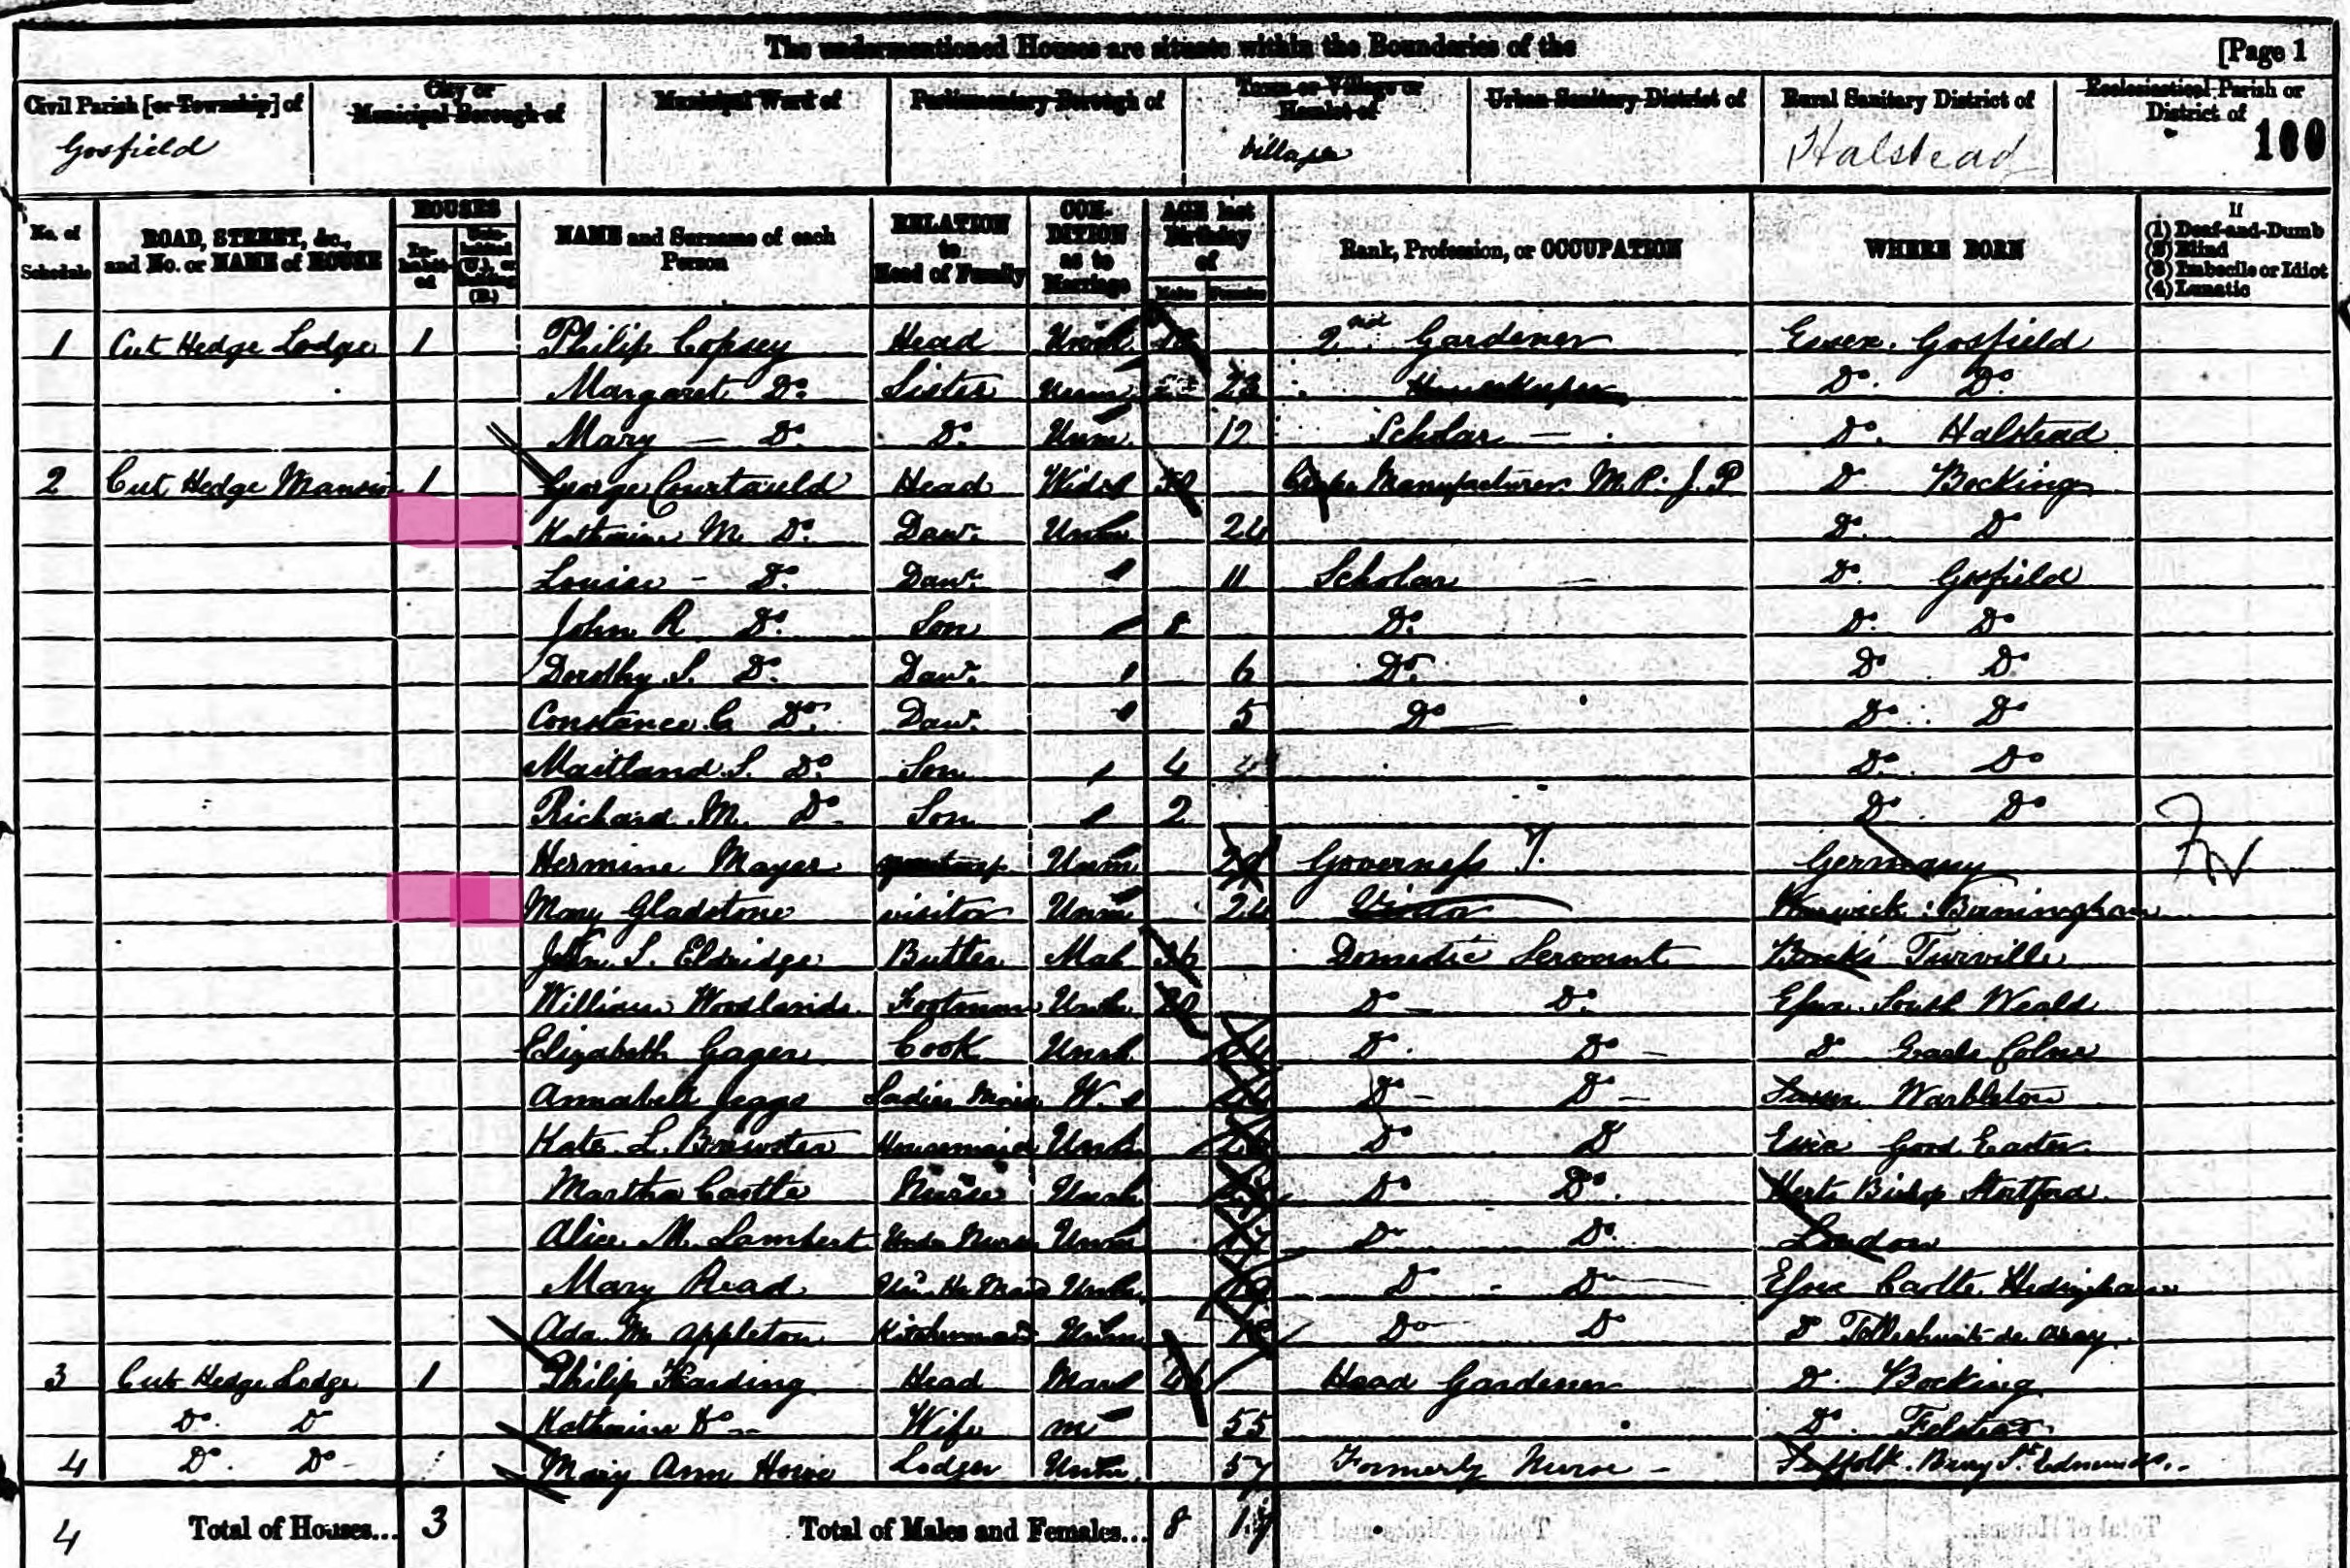 The undermentioned Houses are situate within the Boundaries of the [Page 1
Civil Parish [or Township] of City or Municipal Borough of Municipal Ward of Parliamentary Borough of Town or Village or Hamlet of Urban Sanitary District of Rural Sanitary District of Ecclesiastical Parish or District of
Gosfield Village Halstead 100
No. of Schedule ROAD, STREET, &c., and No. or NAME of HOUSE HOUSES In-habit-ed Unin-habited (U.), or Building (B.) NAME and Surname of each Person RELATION to Head of Family CON-DITION as to Marriage AGE last Birthday of Males Females Rank, Profession, or OCCUPATION WHERE BORN If (1) Deaf-and-Dumb (2) Blind (3) Imbecile or Idiot (4) Lunatic
1 Cut Hedge Lodge 1 Philip Copsey Head 2nd Gardener Essex. Gosfield
Margaret Do. Sister Unm 23 Housekeeper Do. Do.
Mary — Do. Do. Unm 12 Scholar — Do. Halstead
2 Cut Hedge Mansion 1 George Courtauld Head Widr 50 Crape Manufacturer M.P. J.P. Do Bocking
Katharine M. Do. Daur. Unm 24 Do. Do
Louise - Do. Daur. 11 Scholar — Do. Gosfield
John R Do. Son 8 Do. Do. Do
Dorothy S. Do. Daur. 6 Do. Do Do
Constance C. Do. Daur. 5 Do — Do. Do
Maitland S. Do. Son 4 Do. Do
Richard M. Do. Son 2 Do. Do
Hermine Mayer Unm Governess T. Germany
Mary Gladstone visitor Unm 24 Visitor Warwick: Birmingham
John S. Eldridge Butler Mar 36 Domestic Servant Bucks Turville
William Woodlands. Footman Unm 20 Do - Do. Essex. South Weald
Elizabeth Gager Cook Unm Do. Do - Do Earls Colne
Annabell Jeggo Ladies Maid W. Do - Do - Sussex Warbleton
Kate L. Brewster Housemaid Unm Do Do Essex Good Easter.
Martha Castle Nurse Unm Do Do. Herts Bishop Stortford.
Alice M. Lambert Under Nurse Unm 17 Do Do. London
Mary Read Unm Do - Do Essex Castle Hedingham
Ada M. Appleton Kitchenmaid Unm Do Do Do Tolleshunt de arcy
3 Cut Hedge Lodge 1 Philip Harding Head Mar Head Gardener Do. Bocking
Do. Do Katharine Do — Wife m 55 Do. Felstead.
4 Do. Do - Mary Ann Howe Lodger Unm 57 Formerly Nurse - Suffolk. Bury St. Edmunds.
4 Total of Houses... 3 Total of Males and Females... 8 17